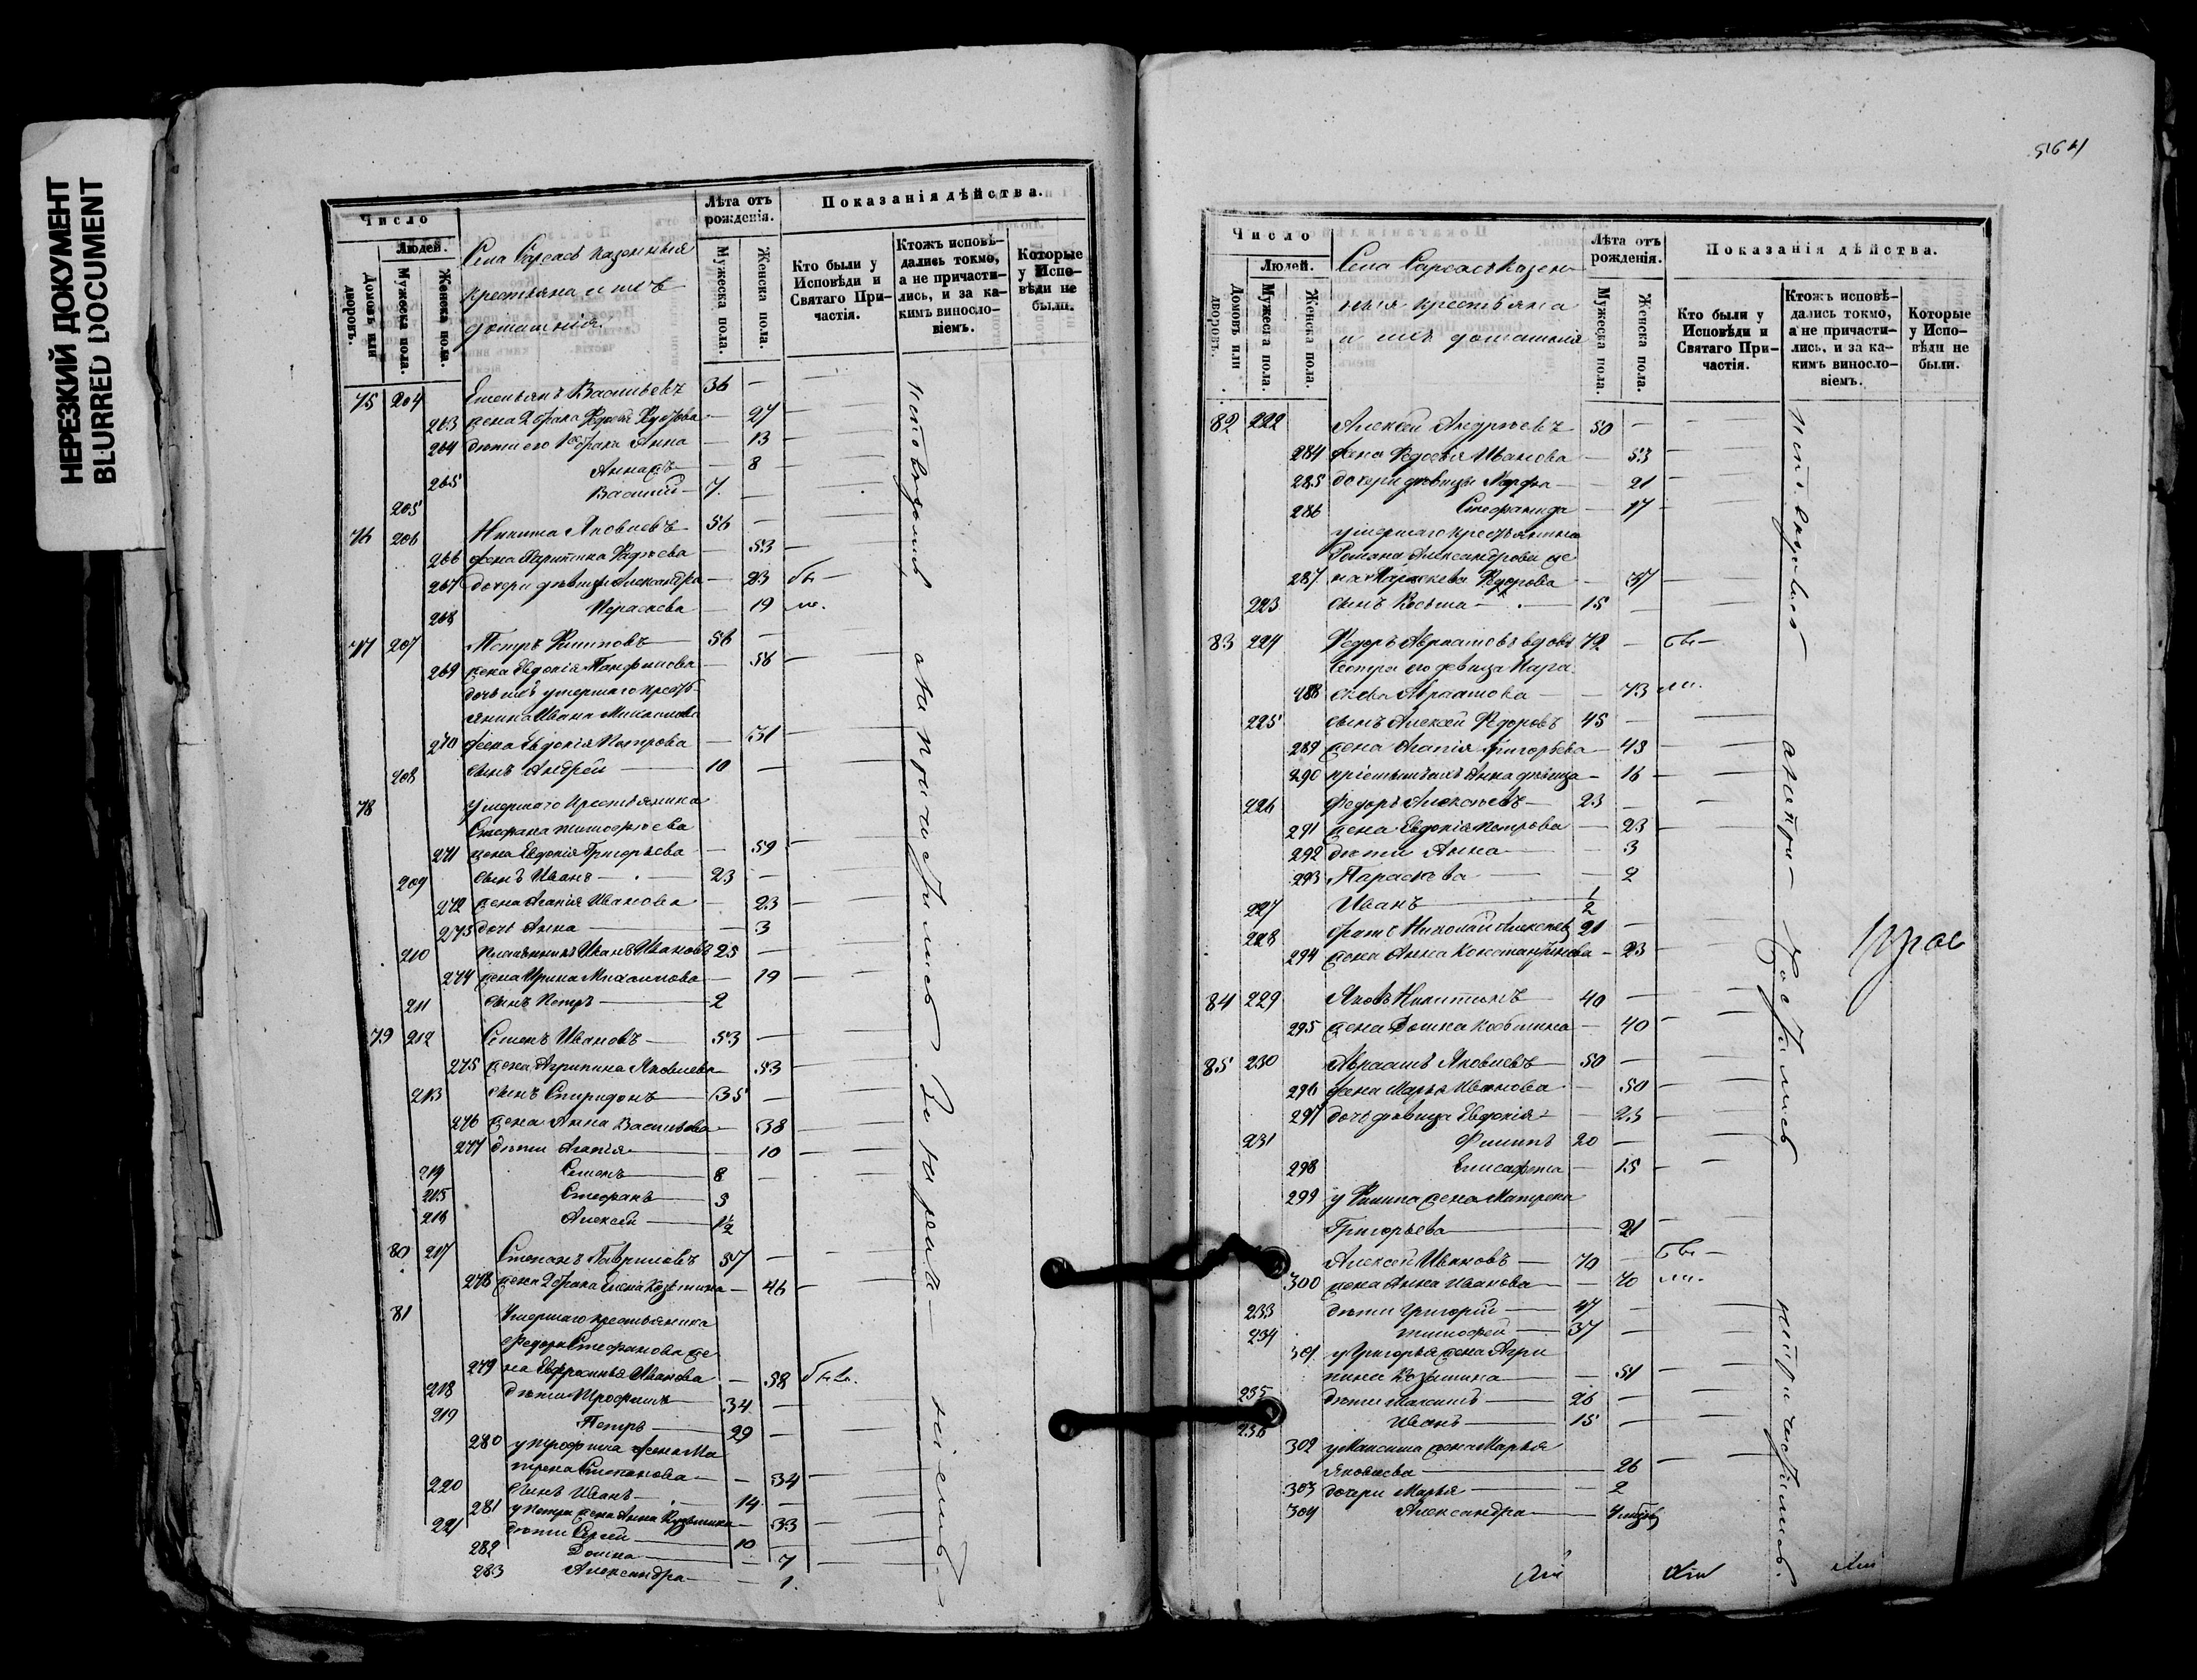 НЕРЕЗКИЙ ДОКУМЕНТ
BLURRED DOCUMENT
Число
Людей.
Домовъ или дворовъ.
Мужеска пола.
Женска пола.
Села казенныя
крестьяна и ихъ
домашнія
Лѣта отъ рожденія.
Мужеска пола.
Женска пола.
Показанія дѣйства.
Кто были у Исповѣди и Святаго Причастія.
Ктожъ исповѣдались токмо, а не причастились, и за какимъ винословіемъ.
Которые у Исповѣди не были.
75 204 Емельянъ Васильевъ 36 —
263 жена 2 брака Федорова — 27
264 дѣти его 1го брака Анна — 13
265 Анна — 8
205 Василий 7 —
76 206 Никита Яковлевъ 56 —
266 жена — 53
267 дочери дѣвицы Александра — 23
268 Параскева — 19
77 207 Петръ Филиповъ 56 —
269 жена Евдокія Панфилова — 56
дочь ихъ умершаго кресть-
янина Ивана Михаилова
270 жена Евдокія Петрова — 31
208 сынъ Андрей 10 —
78 умершаго крестьянина
Стефана Тимофѣева
271 жена Евдокія Григорьева — 59
209 сынъ Иванъ 23 —
272 жена Агапія Иванова — 23
273 дочь Анна — 3
210 племянникъ Иванъ Ивановъ 25 —
274 жена Ирина Михаилова — 19
211 сынъ Петръ 2
79 212 Семенъ Ивановъ 53 —
275 жена Агрипина Яковлева — 53
213 сынъ Спиридонъ 35 —
276 жена Анна Васильева — 38
277 дѣти Агапія — 10
214 Семенъ 8 —
215 Стефанъ 3
216 Алексѣй 1½
80 217 Степанъ Гавриловъ 57 —
278 жена 2 брака Елена Козьмина — 46
81 Умершаго крестьянина
Федора Стефанова же
279 на Евфросинья Иванова — 58
218 дѣти Трофимъ 34
219 Петръ 29 —
280 у Трофима жена Ма
трена Степанова — 34
220 сынъ Иванъ 14 —
281 у Петра жена Анна Кузьмина 33
221 дѣти Сергей 10
282 Домна 7
283 Александра 1
исповѣдались а не причастились
Число
Людей.
Домовъ или дворовъ.
Мужеска пола.
Женска пола.
Села казен-
ныя крестьяна
и ихъ домашнія
Лѣта отъ рожденія.
Мужеска пола.
Женска пола.
Показанія дѣйства.
Кто были у Исповѣди и Святаго Причастія.
Ктожъ исповѣдались токмо, а не причастились, и за какимъ винословіемъ.
Которые у Исповѣди не были.
82 222 Алексѣй Андреевъ 50 —
284 жена Федосья Иванова — 53
285 дочери дѣвицы Марфа — 21
286 Стефанида — 17
умершаго крестьянина
Романа Александрова же
287 на Параскева Федорова — 37
223 сынъ Косьма 15 —
83 224 Федоръ Авраамовъ вдовъ 72 —
Сестра его девица Пара
288 скева Авраамова — 73
225 сынъ Алексѣй Федоровъ 45 —
289 жена Агапія Григорьева — 43
290 Анна дѣвица — 16
226 Федоръ Алексѣевъ 23 —
291 жена Евдокія Петрова — 23
292 дѣти Анна — 3
293 Параскева — 2
227 Иванъ ½
228 братъ Николай Алексѣевъ 21 —
294 жена Анна Константинова — 23
84 229 Яковъ Никитинъ 40 —
295 жена Домна Козьмина — 40
85 230 Авраамъ Яковлевъ 50 —
296 жена Марья Иванова — 50
297 дочь дѣвица Евдокія — 23
231 Филипъ 20 —
298 Елисафета — 15
299 у Филипа жена Матрена
Григорьева 21
Алексѣй Ивановъ 70 —
300 жена Анна Иванова — 70
233 дѣти Григорій 47 —
234 Тимофей 37 —
301 у Григорья жена Агри
пина Козьмина — 51
235 дѣти Максимъ 26 —
236 Иванъ 15 —
302 у Максима жена Марья
Яковлева 26
303 дочери Марья — 2
304 Александра
исповѣдались а не при-
частились